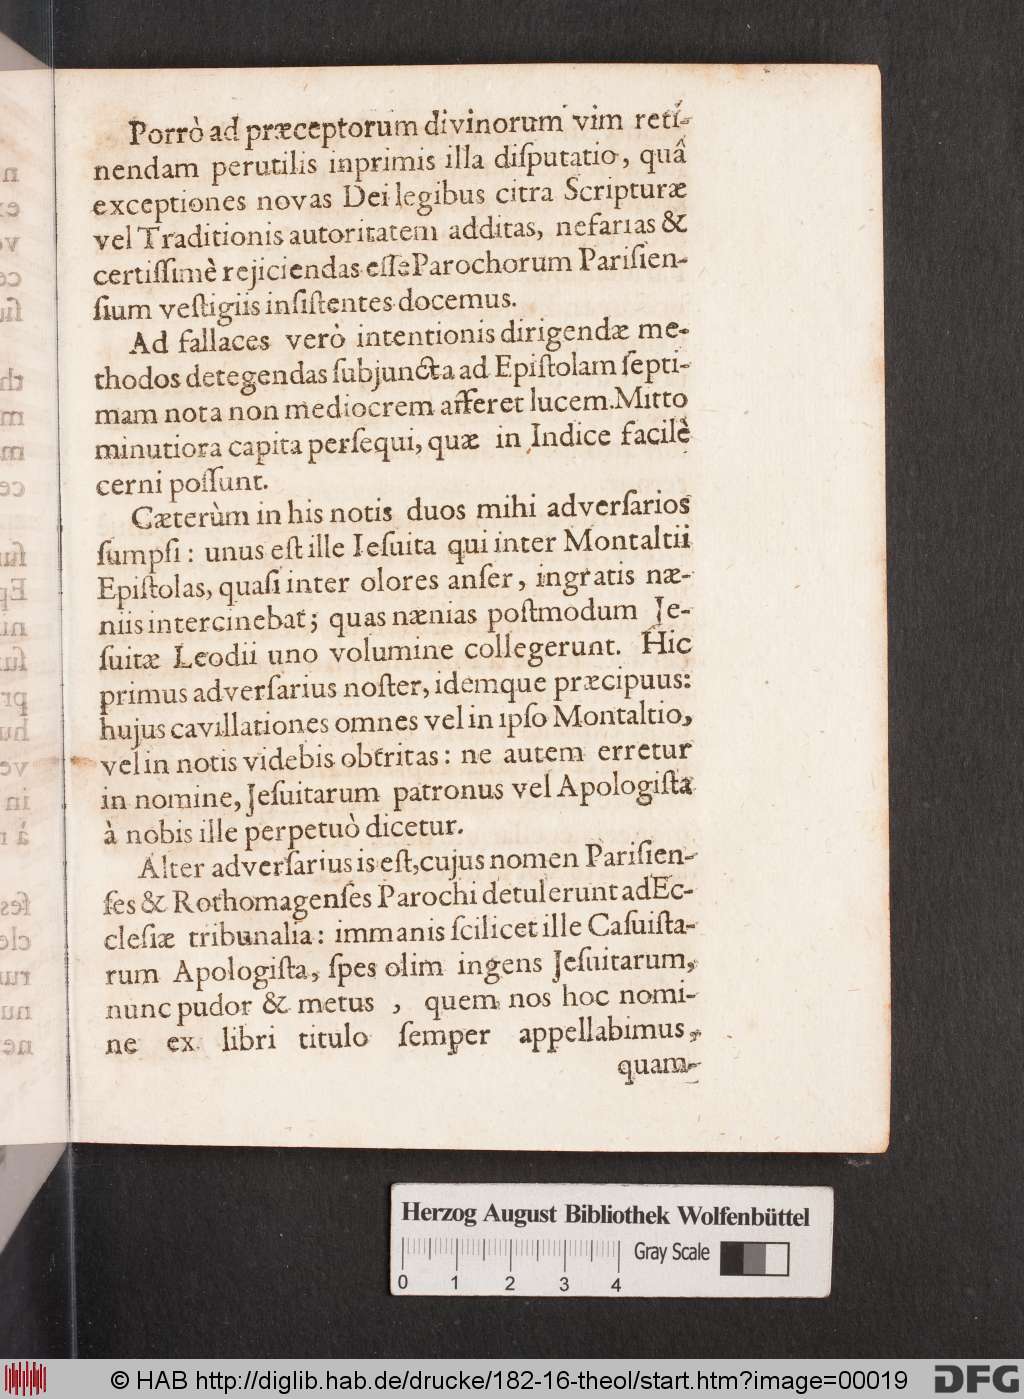 Porrò ad præceptorum divinorum vim reti-
nendam perutilis inprimis illa diſputatio, quâ
exceptiones novas Dei legibus citra Scripturæ
vel Traditionis autoritatem additas, nefarias &
certiſſimè rejiciendas eſſe Parochorum Pariſien-
ſium veſtigiis inſiſtentes docemus.
Ad fallaces verò intentionis dirigendæ me-
thodos detegendas ſubjuncta ad Epiſtolam ſepti-
mam nota non mediocrem afferet lucem. Mitto
minutiora capita perſequi, quæ in Indice facilè
cerni poſſunt.
Cæterùm in his notis duos mihi adverſarios
ſumpſi: unus eſt ille Ieſuita qui inter Montaltii
Epiſtolas, quaſi inter olores anſer, ingratis næ-
niis intercinebat; quas nænias poſtmodum Je-
ſuitæ Leodii uno volumine collegerunt. Hic
primus adverſarius noſter, idemque præcipuus:
hujus cavillationes omnes vel in ipſo Montaltio,
vel in notis videbis obtritas: ne autem erretur
in nomine, Jeſuitarum patronus vel Apologiſta
à nobis ille perpetuò dicetur.
Alter adverſarius is eſt, cujus nomen Pariſien-
ſes & Rothomagenſes Parochi detulerunt ad Ec-
cleſiæ tribunalia: immanis ſcilicet ille Caſuiſta-
rum Apologiſta, ſpes olim ingens Jeſuitarum,
nunc pudor & metus, quem nos hoc nomi-
ne ex libri titulo ſemper appellabimus,
quam-
Herzog August Bibliothek Wolfenbüttel
Gray Scale
0 1 2 3 4
© HAB http://diglib.hab.de/drucke/182-16-theol/start.htm?image=00019
DFG